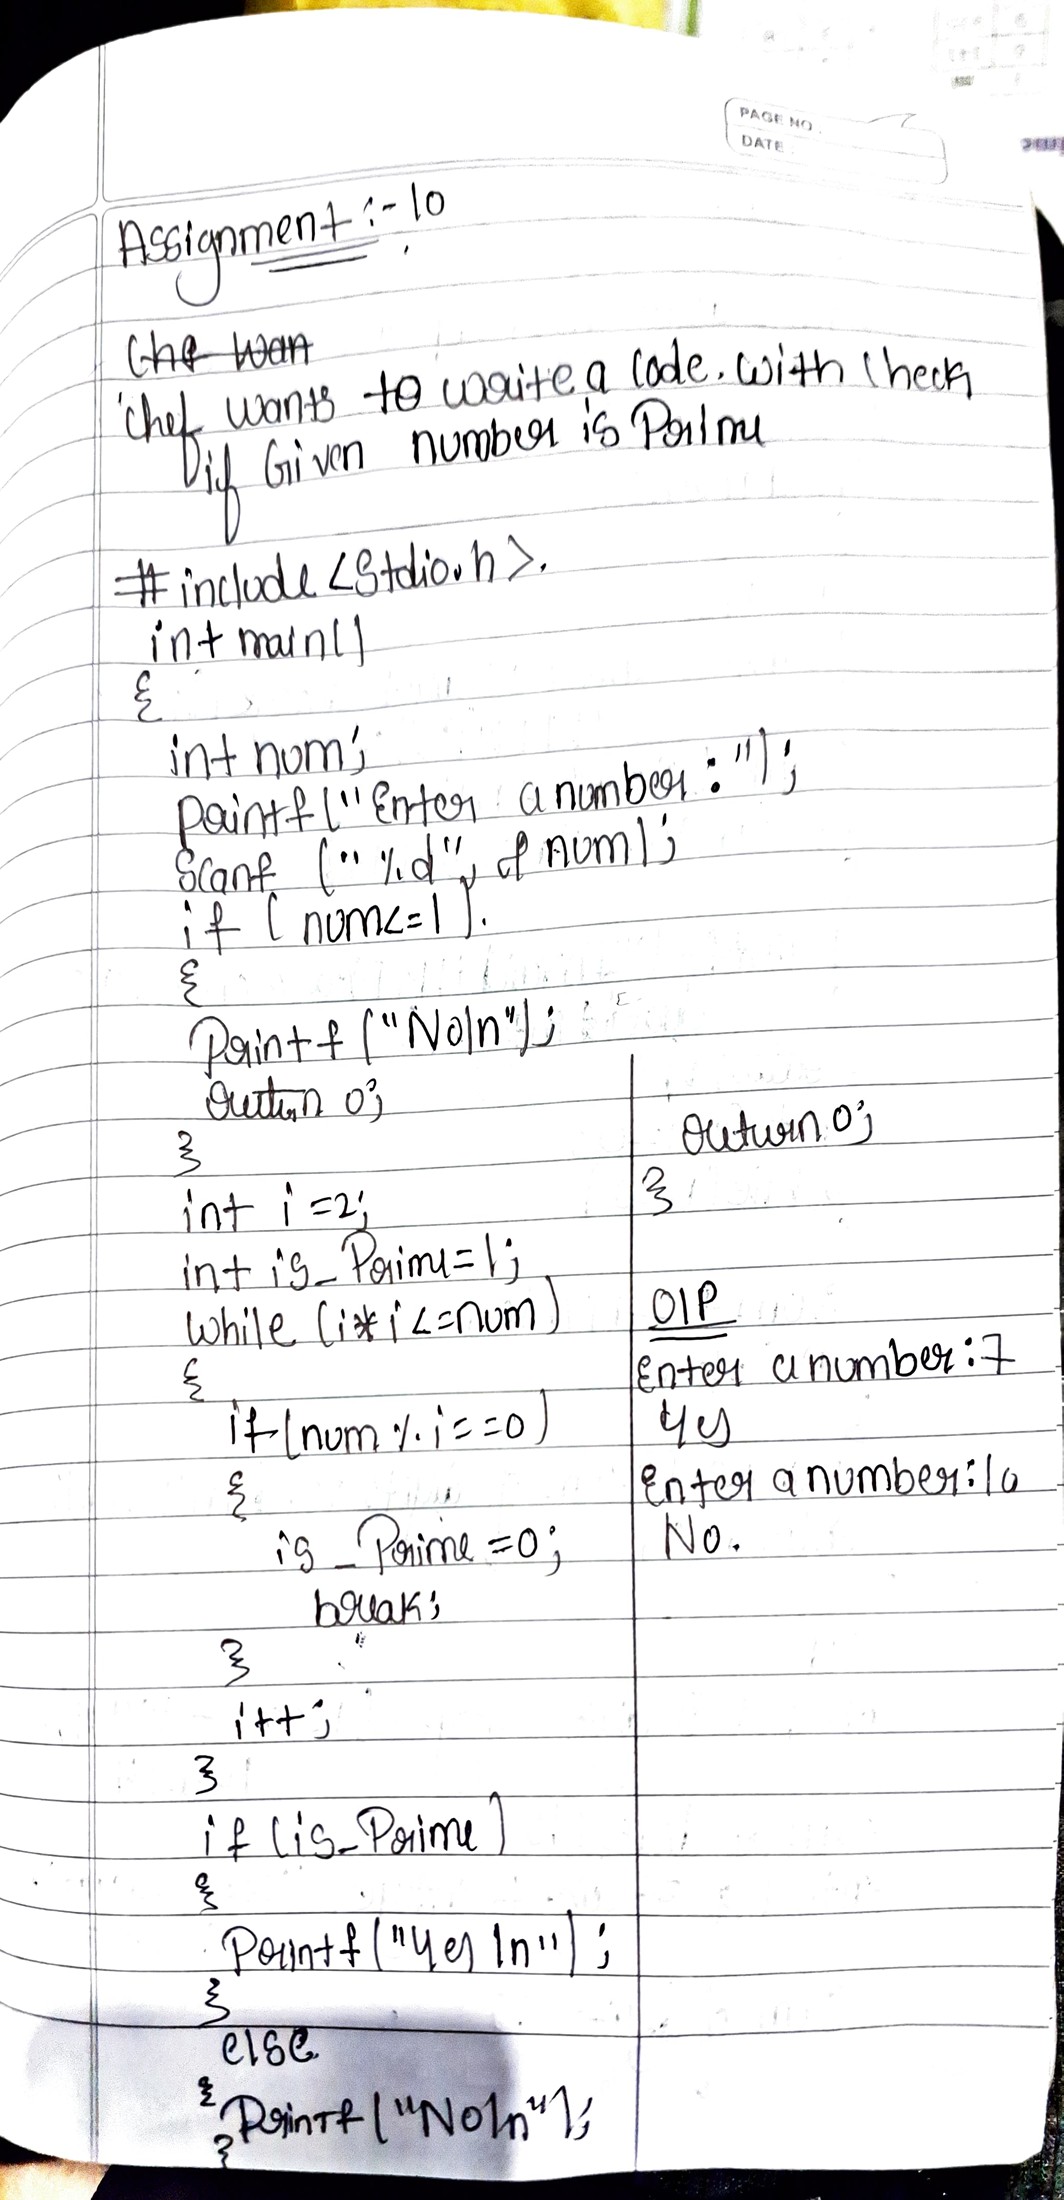 PAGE NO.
DATE
Assignment :- 10
Che wan
Chef wants to write a code. with check
if Given number is Prime
#include <Stdio.h>.
int main()
{
int num;
printf("Enter a number : ");
Scanf ("%d", &num);
if (num<=1).
{
Printf ("No\n");
return 0;
}
int i =2;
int is_Prime=1;
while (i*i<=num)
{
if(num % i==0)
{
is_Prime=0;
break;
}
i++;
}
if (is_Prime)
{
Printf("Yes \n");
}
else
{
Printf("No\n");
}
return 0;
}
O/P
Enter a number:7
Yes
Enter a number:10
No.